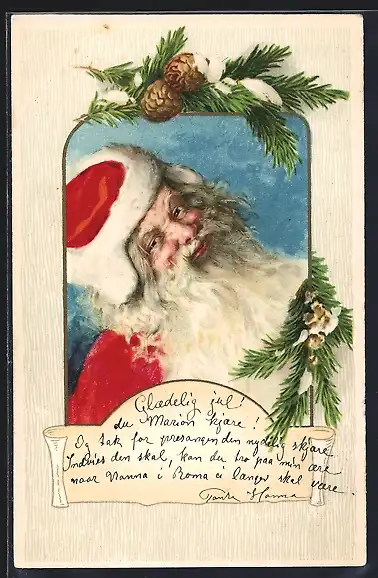 Glædelig jul!
du Marion kjære!
Og tak for presangen den nydelig skjære
Indvies den skal, kan du tro paa min ære
naar Nanna i Roma ei længer skal være.
Tante Hanna